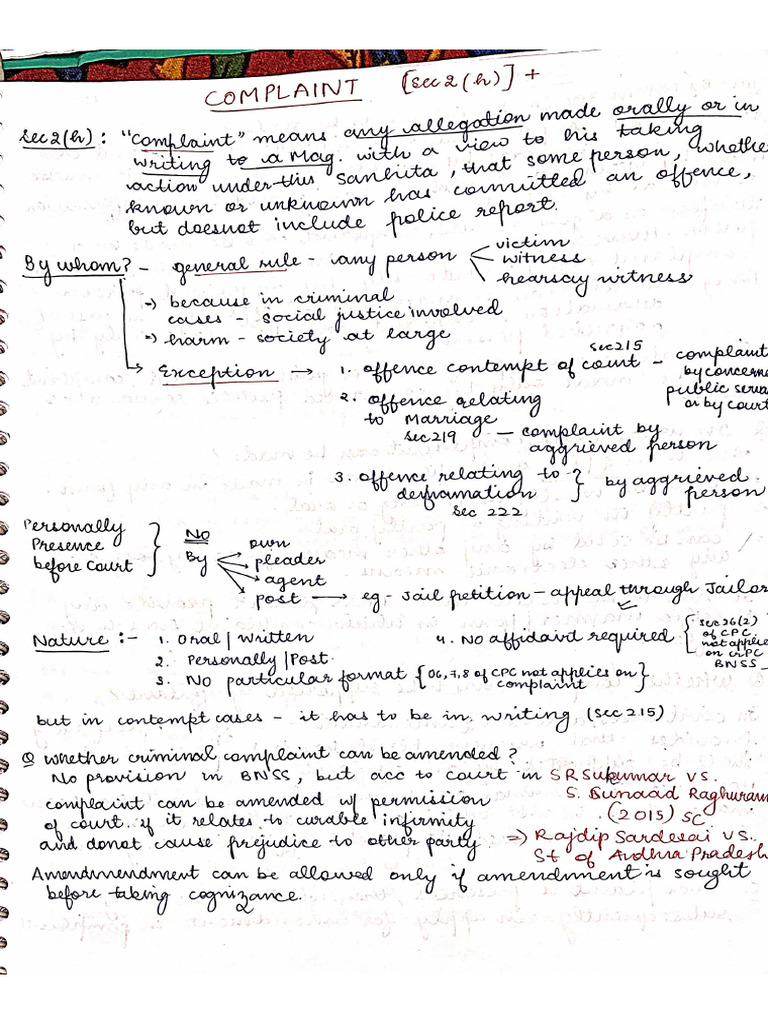 COMPLAINT [sec 2 (h)] +
sec 2(h) : "Complaint" means any allegation made orally or in
writing to a Mag. with a view to his taking
action under this Sanhita, that some person, whether
known or unknown has committed an offence,
but doesnot include police report.
By whom? - general rule - any person
victim
witness
hearsay witness
-) because in criminal
cases - social justice involved
-) harm - society at large
sec 215
Exception → 1. offence contempt of court - complaint
by concerne
public serva
or by court
2. offence relating
to Marriage
sec 219 - complaint by
aggrieved person
3. offence relating to
defamation } by aggrieved
person
sec 222
Personally
Presence
before court } No
By
own
pleader
agent
post → eg - Jail petition - appeal through Jailor
Nature :- 1. Oral / written
2. Personally / Post
3. No particular format { O6,7,8 of CPC not applies on
complaint }
4. No affidavit required { sec 26(2)
of CPC
not applie
on crPC
BNSS
but in contempt cases - it has to be in writing (sec 215)
Q whether criminal complaint can be amended ?
No provision in BNSS, but acc to court in SR Sukumar vs.
S. Sunaad Raghuram
(2015) SC
complaint can be amended w/ permission
of court if it relates to curable infirmity
and donot cause prejudice to other party
⇒ Rajdip Sardesai vs.
St of Andhra Pradesh
Amendmendment can be allowed only if amendment is sought
before taking cognizance.